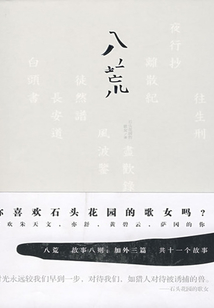 八荒
夜行抄
離散記
風波鑒
徒然譜
長安道
白紙書
你喜欢石头花园的歌女吗？
喜欢朱天文，亦舒，黄碧云，萨冈的你
八荒 故事八则，加外三篇 共十一个故事
时光永远较我们早到一步，对待我们，如猎人对待被诱捕的兽。
——石头花园的歌女